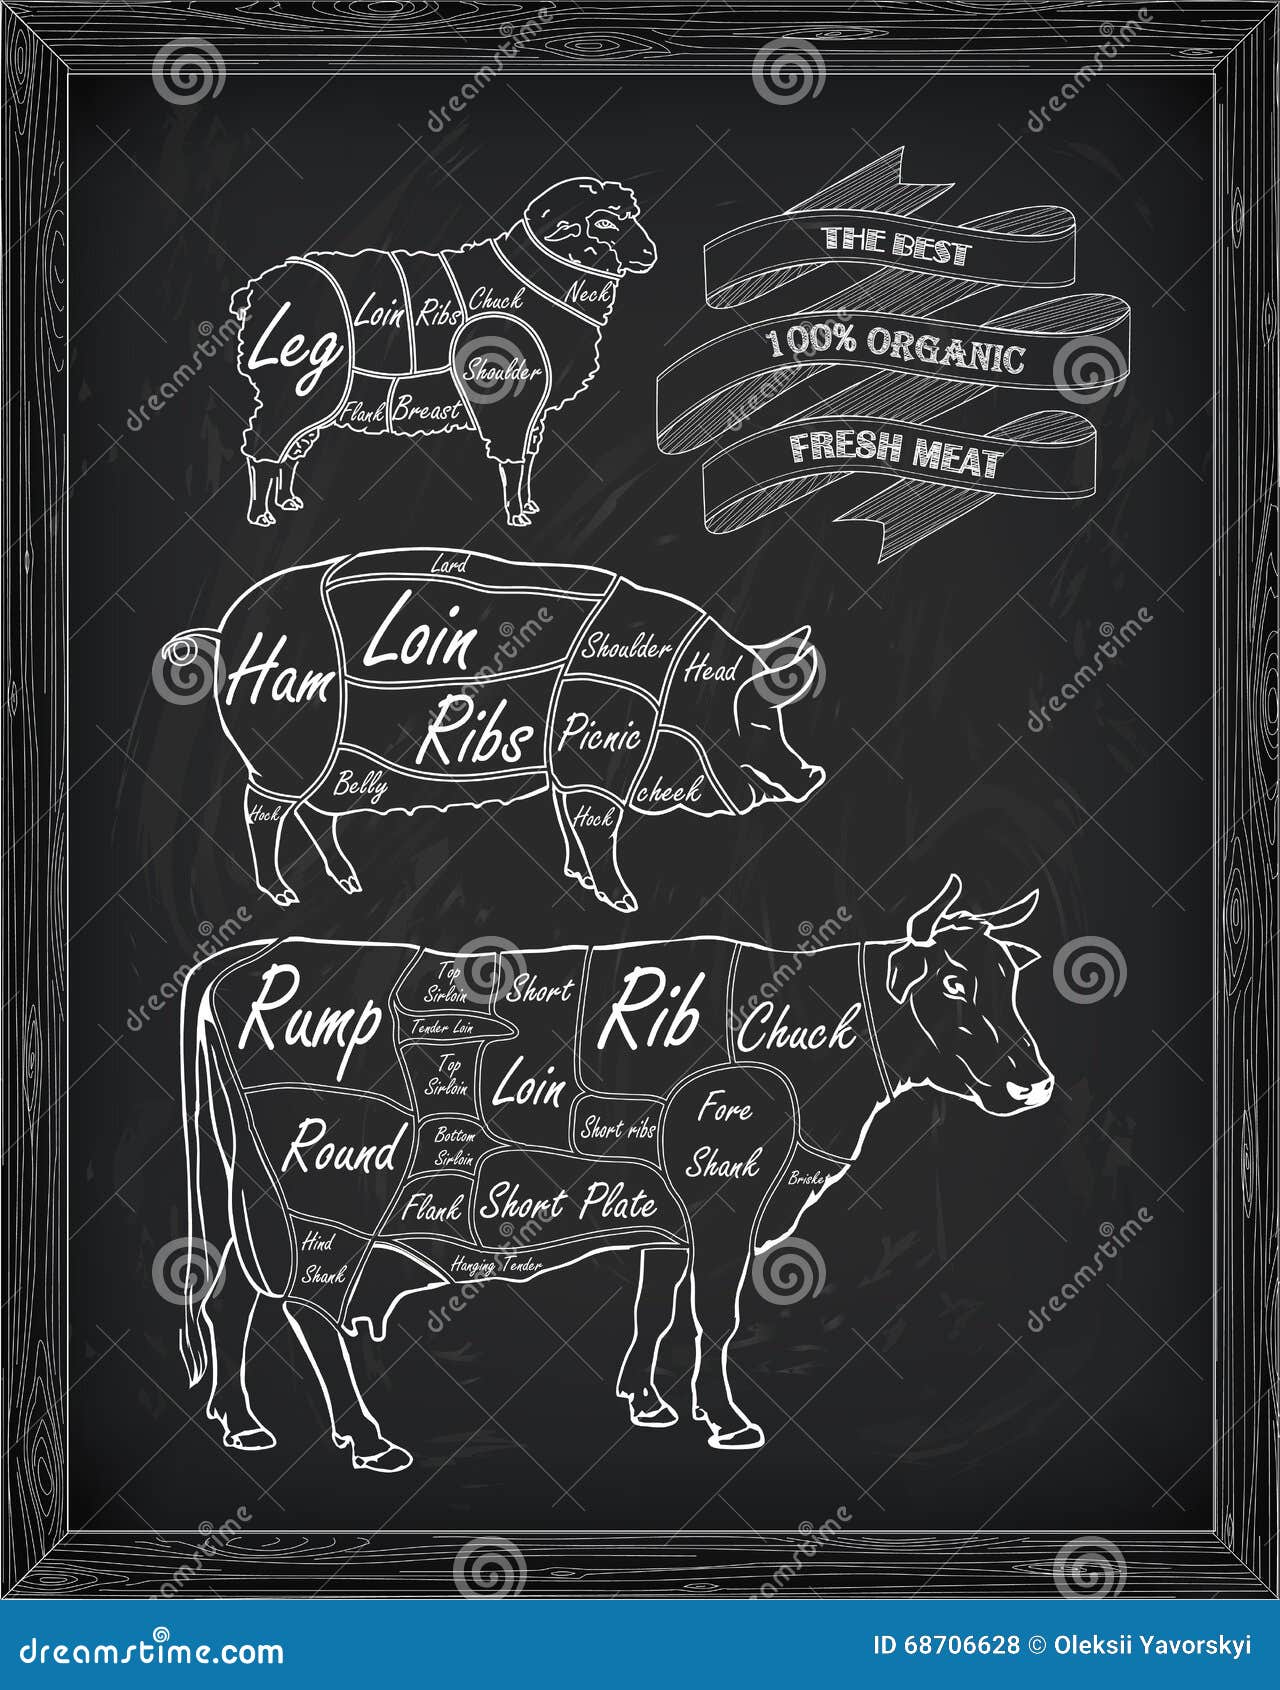 THE BEST
100% ORGANIC
FRESH MEAT
Leg
Loin
Ribs
Chuck
Neck
Shoulder
Flank
Breast
Lard
Ham
Loin
Ribs
Shoulder
Head
Picnic
cheek
Belly
Hock
Hock
Rump
Top
Sirloin
Tender Loin
Top
Sirloin
Bottom
Sirloin
Short
Loin
Rib
Chuck
Round
Short ribs
Fore
Shank
Brisket
Flank
Short Plate
Hind
Shank
Hanging Tender
dreamstime.com
ID 68706628 © Oleksii Yavorskyi